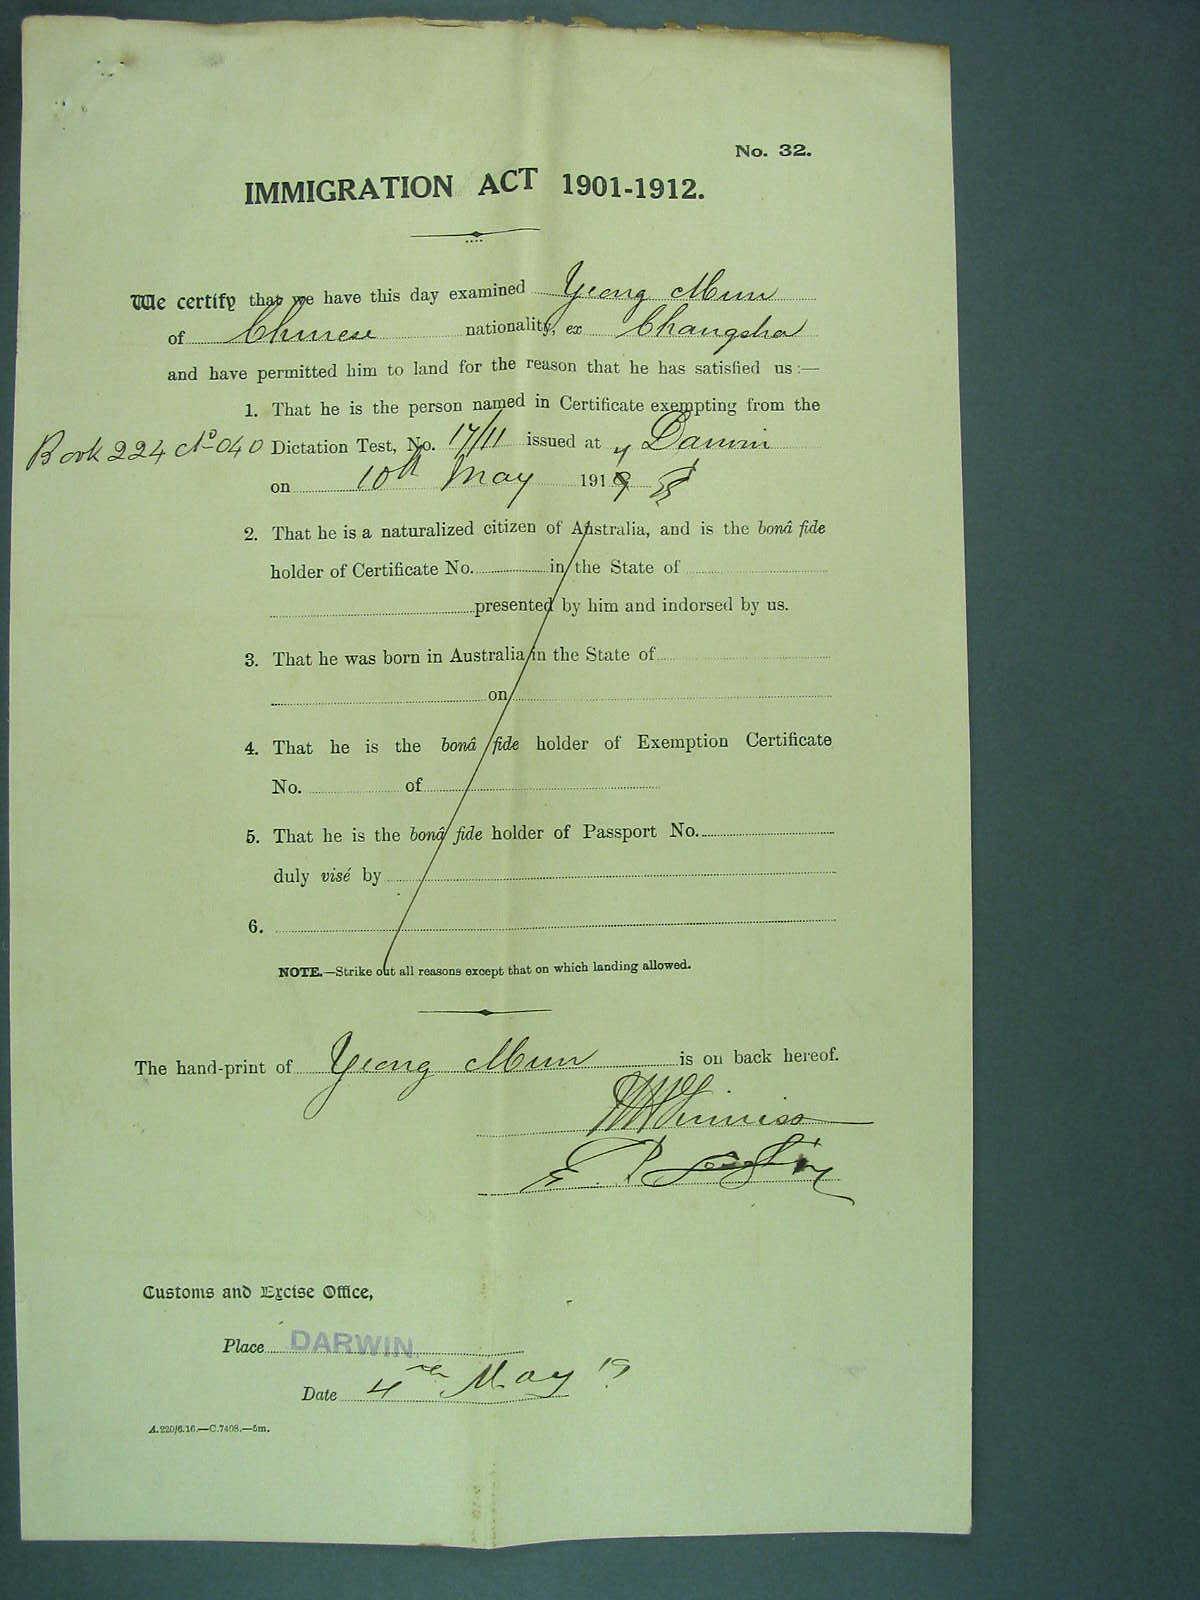 No. 32.
IMMIGRATION ACT 1901-1912.
We certify that we have this day examined Yeong Mun
of Chinese nationality, ex Changsha
and have permitted him to land for the reason that he has satisfied us:—
1. That he is the person named in Certificate exempting from the
Book 224 No 040 Dictation Test, No. 17/11 issued at Darwin
on 10th May 191
2. That he is a naturalized citizen of Australia, and is the bonâ fide
holder of Certificate No. in the State of
presented by him and indorsed by us.
3. That he was born in Australia in the State of
on
4. That he is the bonâ fide holder of Exemption Certificate
No. of
5. That he is the bonâ fide holder of Passport No.
duly visé by
6.
NOTE.—Strike out all reasons except that on which landing allowed.
The hand-print of Yeong Mun is on back hereof.
Customs and Excise Office,
Place DARWIN
Date 4th May 19
A.220/6.16.—C.7408.—5m.